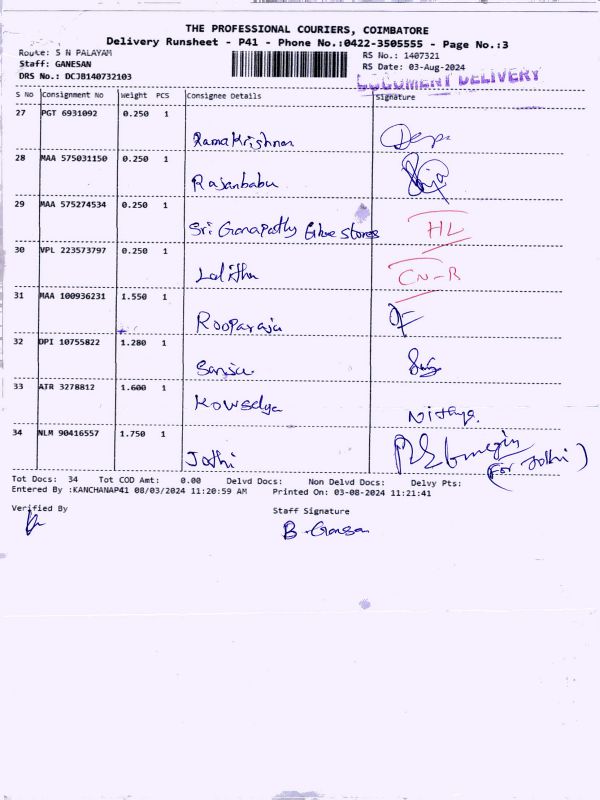 THE PROFESSIONAL COURIERS, COIMBATORE
Delivery Runsheet - P41 - Phone No.:0422-3505555 - Page No.:3
Route: S N PALAYAM
RS No.: 1407321
Staff: GANESAN
RS Date: 03-Aug-2024
DRS No.: DCJB140732103
DOCUMENT DELIVERY
S No Consignment No Weight PCS Consignee Details Signature
27 PGT 6931092 0.250 1
Ramakrishnan
28 MAA 575031150 0.250 1
Rajanbabu
29 MAA 575274534 0.250 1
Sri Ganapathy Glue stores HL
30 VPL 223573797 0.250 1
Lalitha CN-R
31 MAA 100936231 1.550 1
Rooparaja
32 DPI 10755822 1.280 1
33 ATR 3278812 1.600 1
Kowsalya Nithya.
34 NLM 90416557 1.750 1
Jothi (For Jothi)
Tot Docs: 34 Tot COD Amt: 0.00 Delvd Docs: Non Delvd Docs: Delvy Pts:
Entered By :KANCHANAP41 08/03/2024 11:20:59 AM Printed On: 03-08-2024 11:21:41
Verified By Staff Signature
B. Ganesan